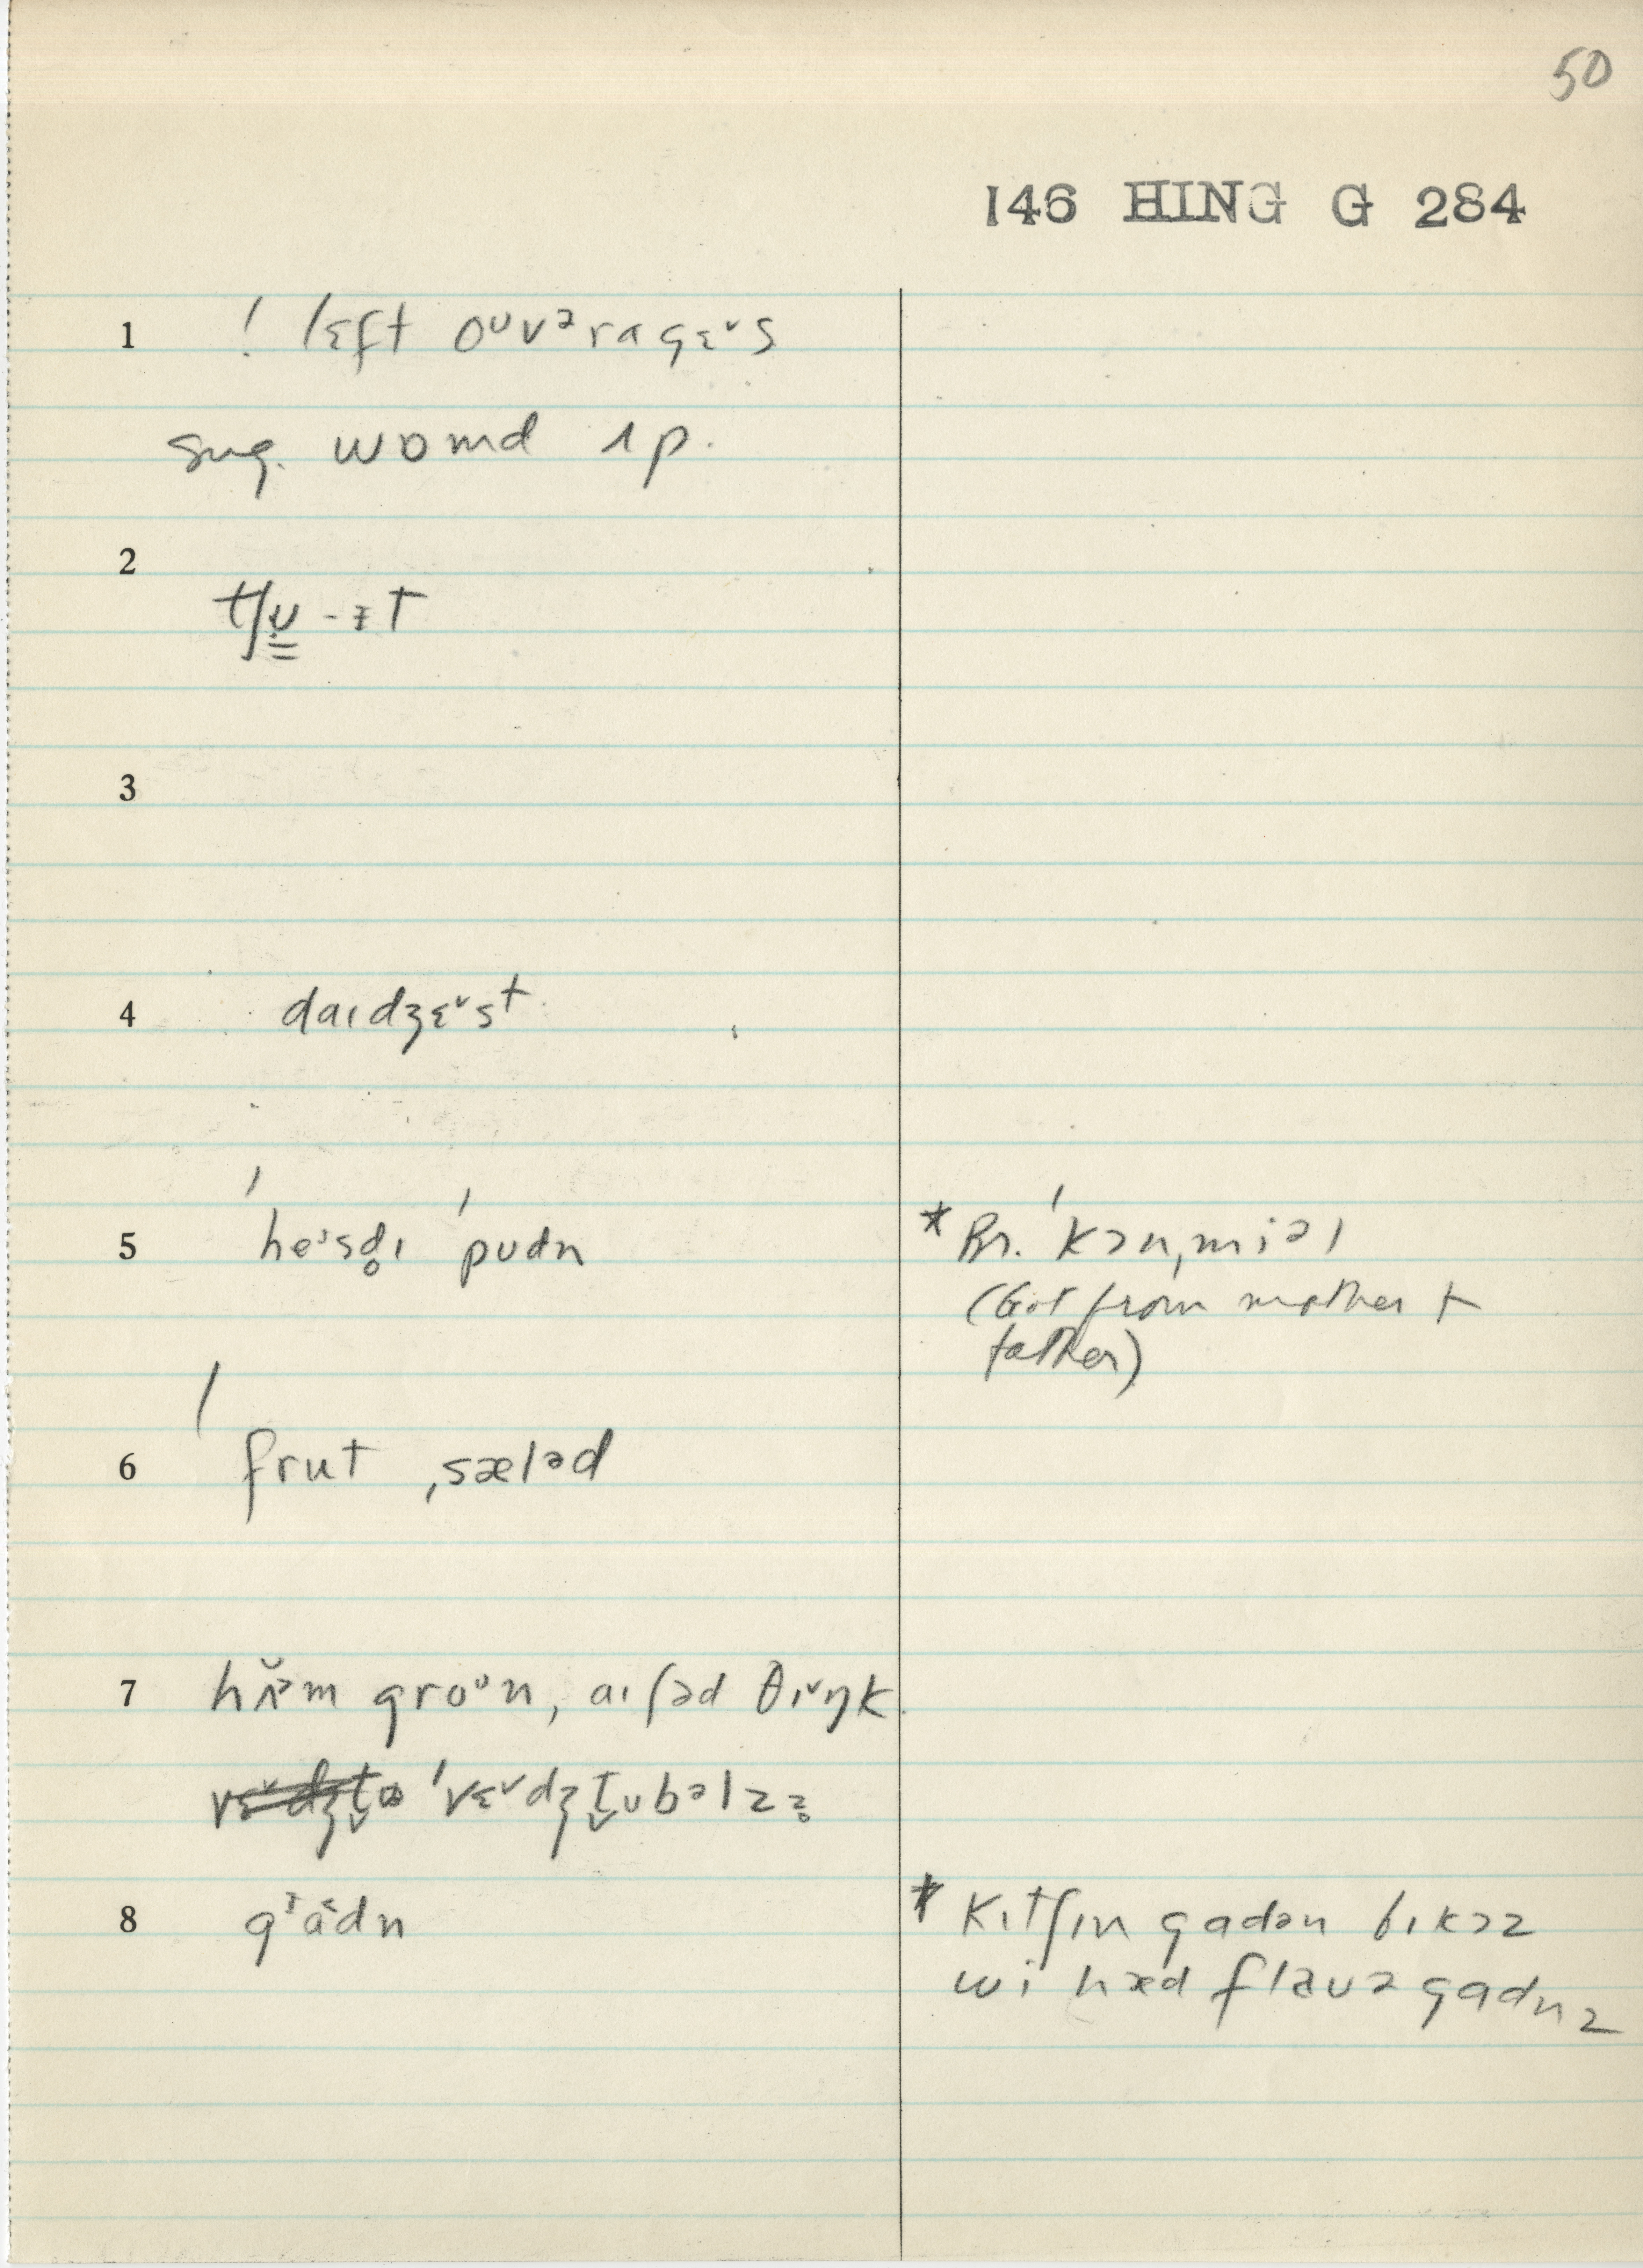 50
146 HING G 284
1 ! lɛft oᶸvᵊrɑgɛ˅s
sug. wɒmd ʌp.
2 tʃʊ̳ - ɪt
3
4 daɪdʒɛ˅st
5 ˈheᶦsd̥ɪ ˈpudn * Br. ˈkɔnˌmiəl
(Got from mother +
father)
6 ˈfrut ˌsæləd
7 groᶷn, aɪʃəd θɪ˅ŋk
ˈvɛ˅dʒt̬ʊbəlzz̥
8 gᶧa˂dn * kɪtʃɪn gadən bɪkɔz
wi hæd flaʊə gadnz